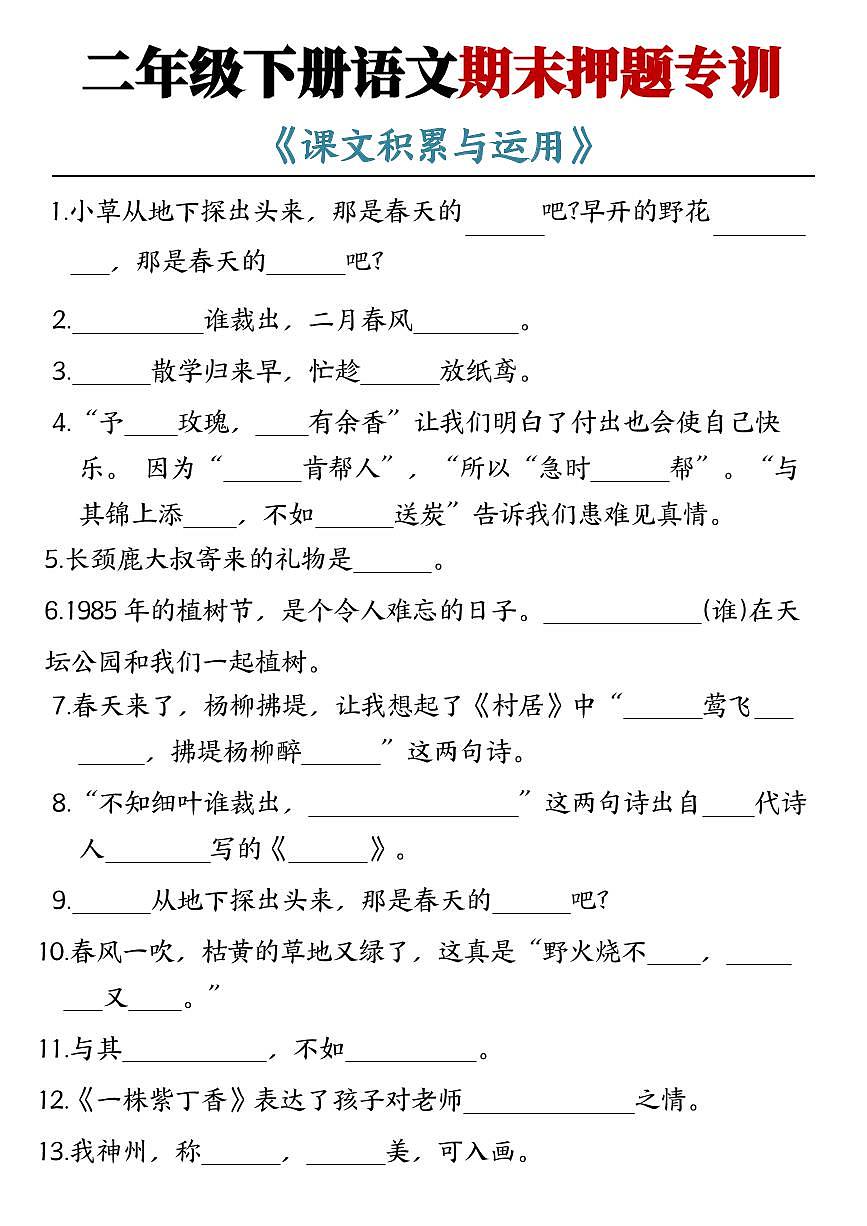 二年级下册语文期末押题专训
《课文积累与运用》
1.小草从地下探出头来，那是春天的______吧?早开的野花_______
___，那是春天的______吧?
2.__________谁裁出，二月春风________。
3.______散学归来早，忙趁______放纸鸢。
4.“予____玫瑰，____有余香”让我们明白了付出也会使自己快
乐。 因为“______肯帮人”，“所以“急时______帮”。“与
其锦上添____，不如______送炭”告诉我们患难见真情。
5.长颈鹿大叔寄来的礼物是______。
6.1985 年的植树节，是个令人难忘的日子。____________(谁)在天
坛公园和我们一起植树。
7.春天来了，杨柳拂堤，让我想起了《村居》中“______莺飞___
_____，拂堤杨柳醉______”这两句诗。
8.“不知细叶谁裁出，________________”这两句诗出自____代诗
人________写的《______》。
9.______从地下探出头来，那是春天的______吧?
10.春风一吹，枯黄的草地又绿了，这真是“野火烧不____，_____
___又____。”
11.与其___________，不如__________。
12.《一株紫丁香》表达了孩子对老师_____________之情。
13.我神州，称______，______美，可入画。